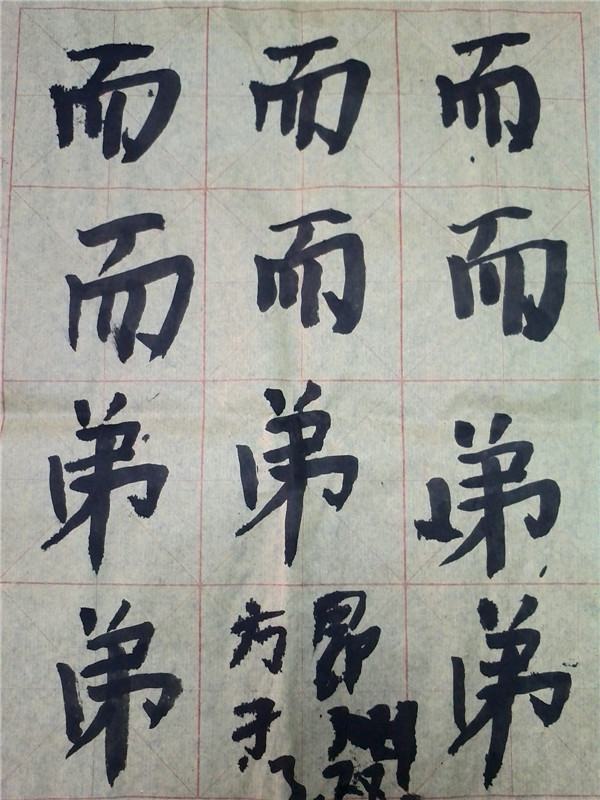 而而而
而而而
弟弟弟
弟弟